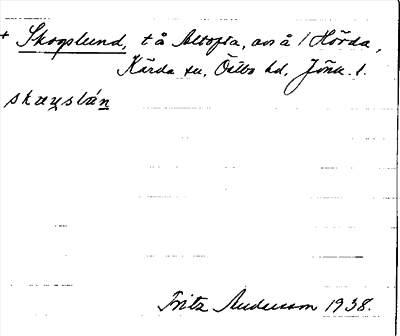 + Skogslund, t å Altofta, avs å / Hörda,
Kärda sn, Östbo hd, Jönk. l.
skɷγslán
Fritz Andersson 1938.